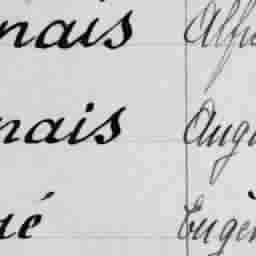 nais Alfr
nais Augu
é Eugèn